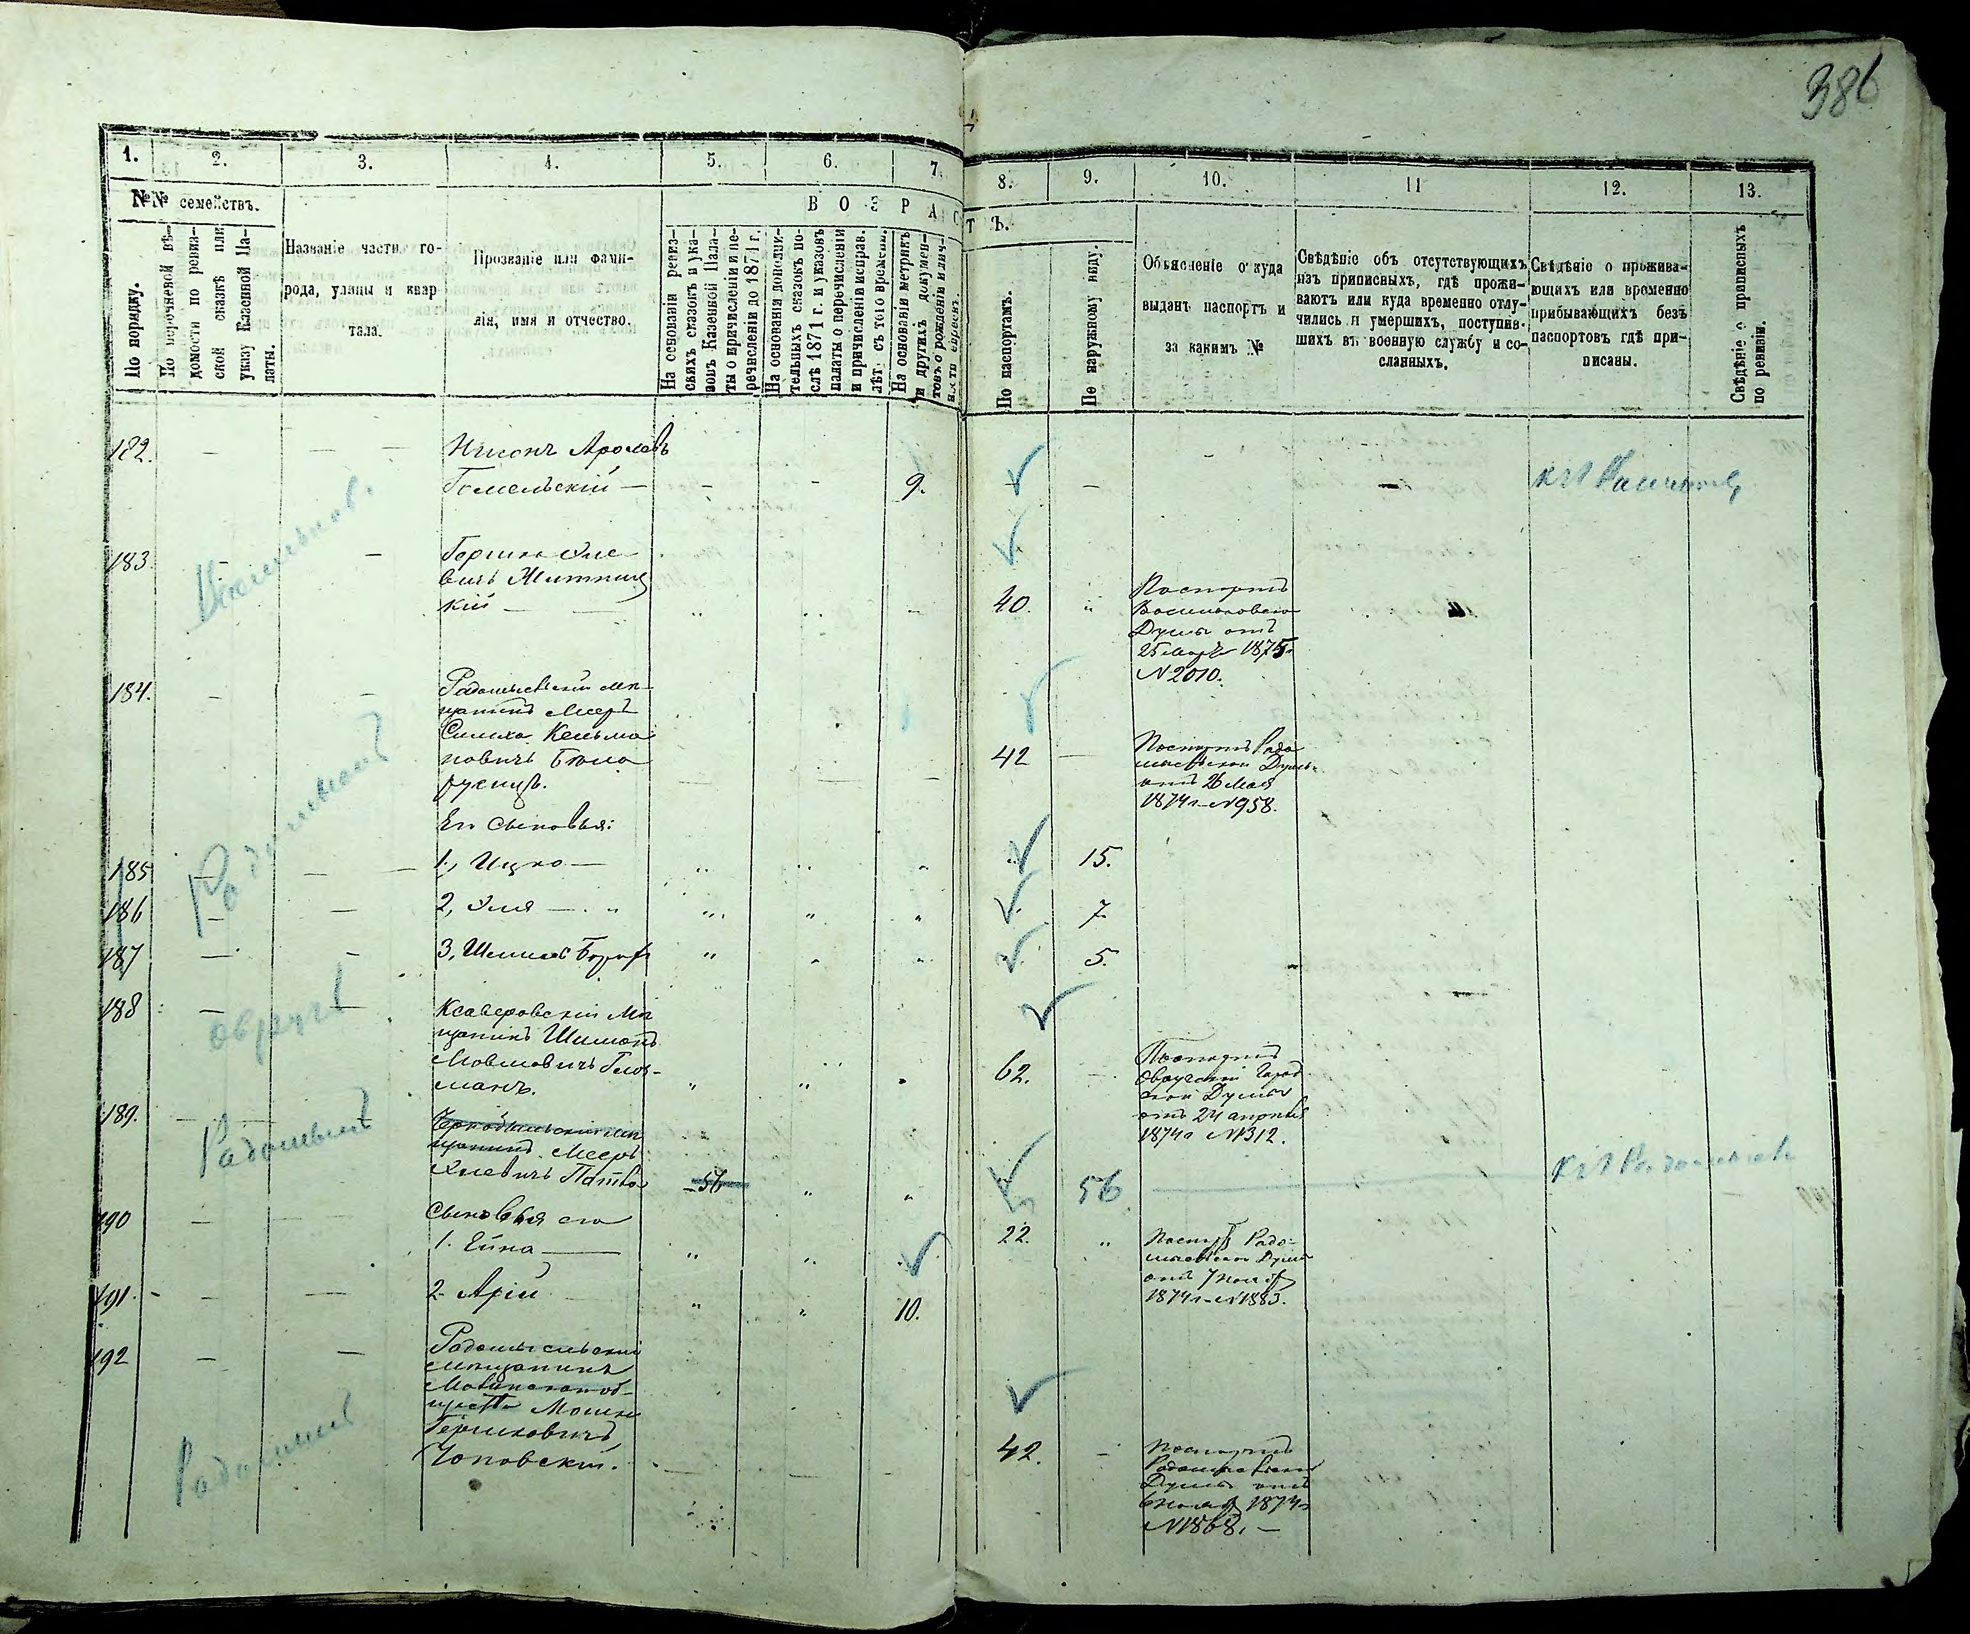 386
1.
2.
3.
4.
5.
6.
7.
8.
9.
10.
11
12.
13.
№№ семействъ.
ВОЗРАСТЪ.
По порядку.
По перечневой вѣ-
домости по ревиз-
ской сказкѣ или
указу Казенной Па-
латы.
Названіе части го-
рода, улицы и квар
тала.
Прозваніе или фами-
лія, имя и отчество.
На основаніи ревиз-
скихъ сказокъ и ука-
зовъ Казенной Пала-
ты о причисленіи и пе-
речисленіи до 1871 г.
На основаніи дополни-
тельныхъ сказокъ по-
слѣ 1871 г. и указовъ
палаты о перечисленіи
и причисленіи исправ.
лѣт. съ того времени.
На основаніи метрикъ
и другихъ докумен-
товъ о рожденіи и лич-
ности евреевъ.
По паспортамъ.
По наружному виду.
Объясненіе откуда
выданъ паспортъ и
за какимъ №
Свѣдѣніе объ отсутствующихъ
изъ приписныхъ, гдѣ прожи-
ваютъ или куда временно отлу-
чились и умершихъ, поступив-
шихъ въ военную службу и со-
сланныхъ.
Свѣдѣніе о прожива-
ющихъ или временно
прибывающихъ безъ
паспортовъ гдѣ при-
писаны.
Свѣдѣніе о приписныхъ
по ревизіи.
182.
Гомельскій —
9.
183.
вичъ Житниц
кій —
40.
Паспортъ
Васильковской
Думы отъ
25 Марта 1875 г.
№ 2010.
184.
Радомысльскій мѣ-
щанинъ Мееръ
Симха Кельма
новичъ Бѣло
русецъ.
42
Паспортъ Радо
мысльской Думы
отъ 26 Мая
1874 г. № 958.
Его сыновья:
185
1., Ицко —
15.
186
2, Эля —
7.
187
3, Шмилъ Борух
5.
188
Ксаверовскій Мѣ
щанинъ Шимонъ
Мовшовичъ Глоз-
манъ.
62.
Паспортъ
Овручской Город
ской Думы
отъ 24 апрѣля
1874 г. № 312.
Овручъ
189.
Чернобыльскій мѣ
щанинъ Мееръ
Элевичъ
56
56
Радомысль
190
Сыновья его
1. Ейна —
22.
Паспортъ Радо-
мысльской Думы
отъ 7 нояб
1874 г. № 1883.
191.
2. Арій
10.
192
Радомысльскій
мѣщанинъ
Мошко
Гершковичъ
Чоповскій.
42.
Паспортъ
Радомысльской
Думы отъ
6 нояб 1874 г.
№ 1868. —